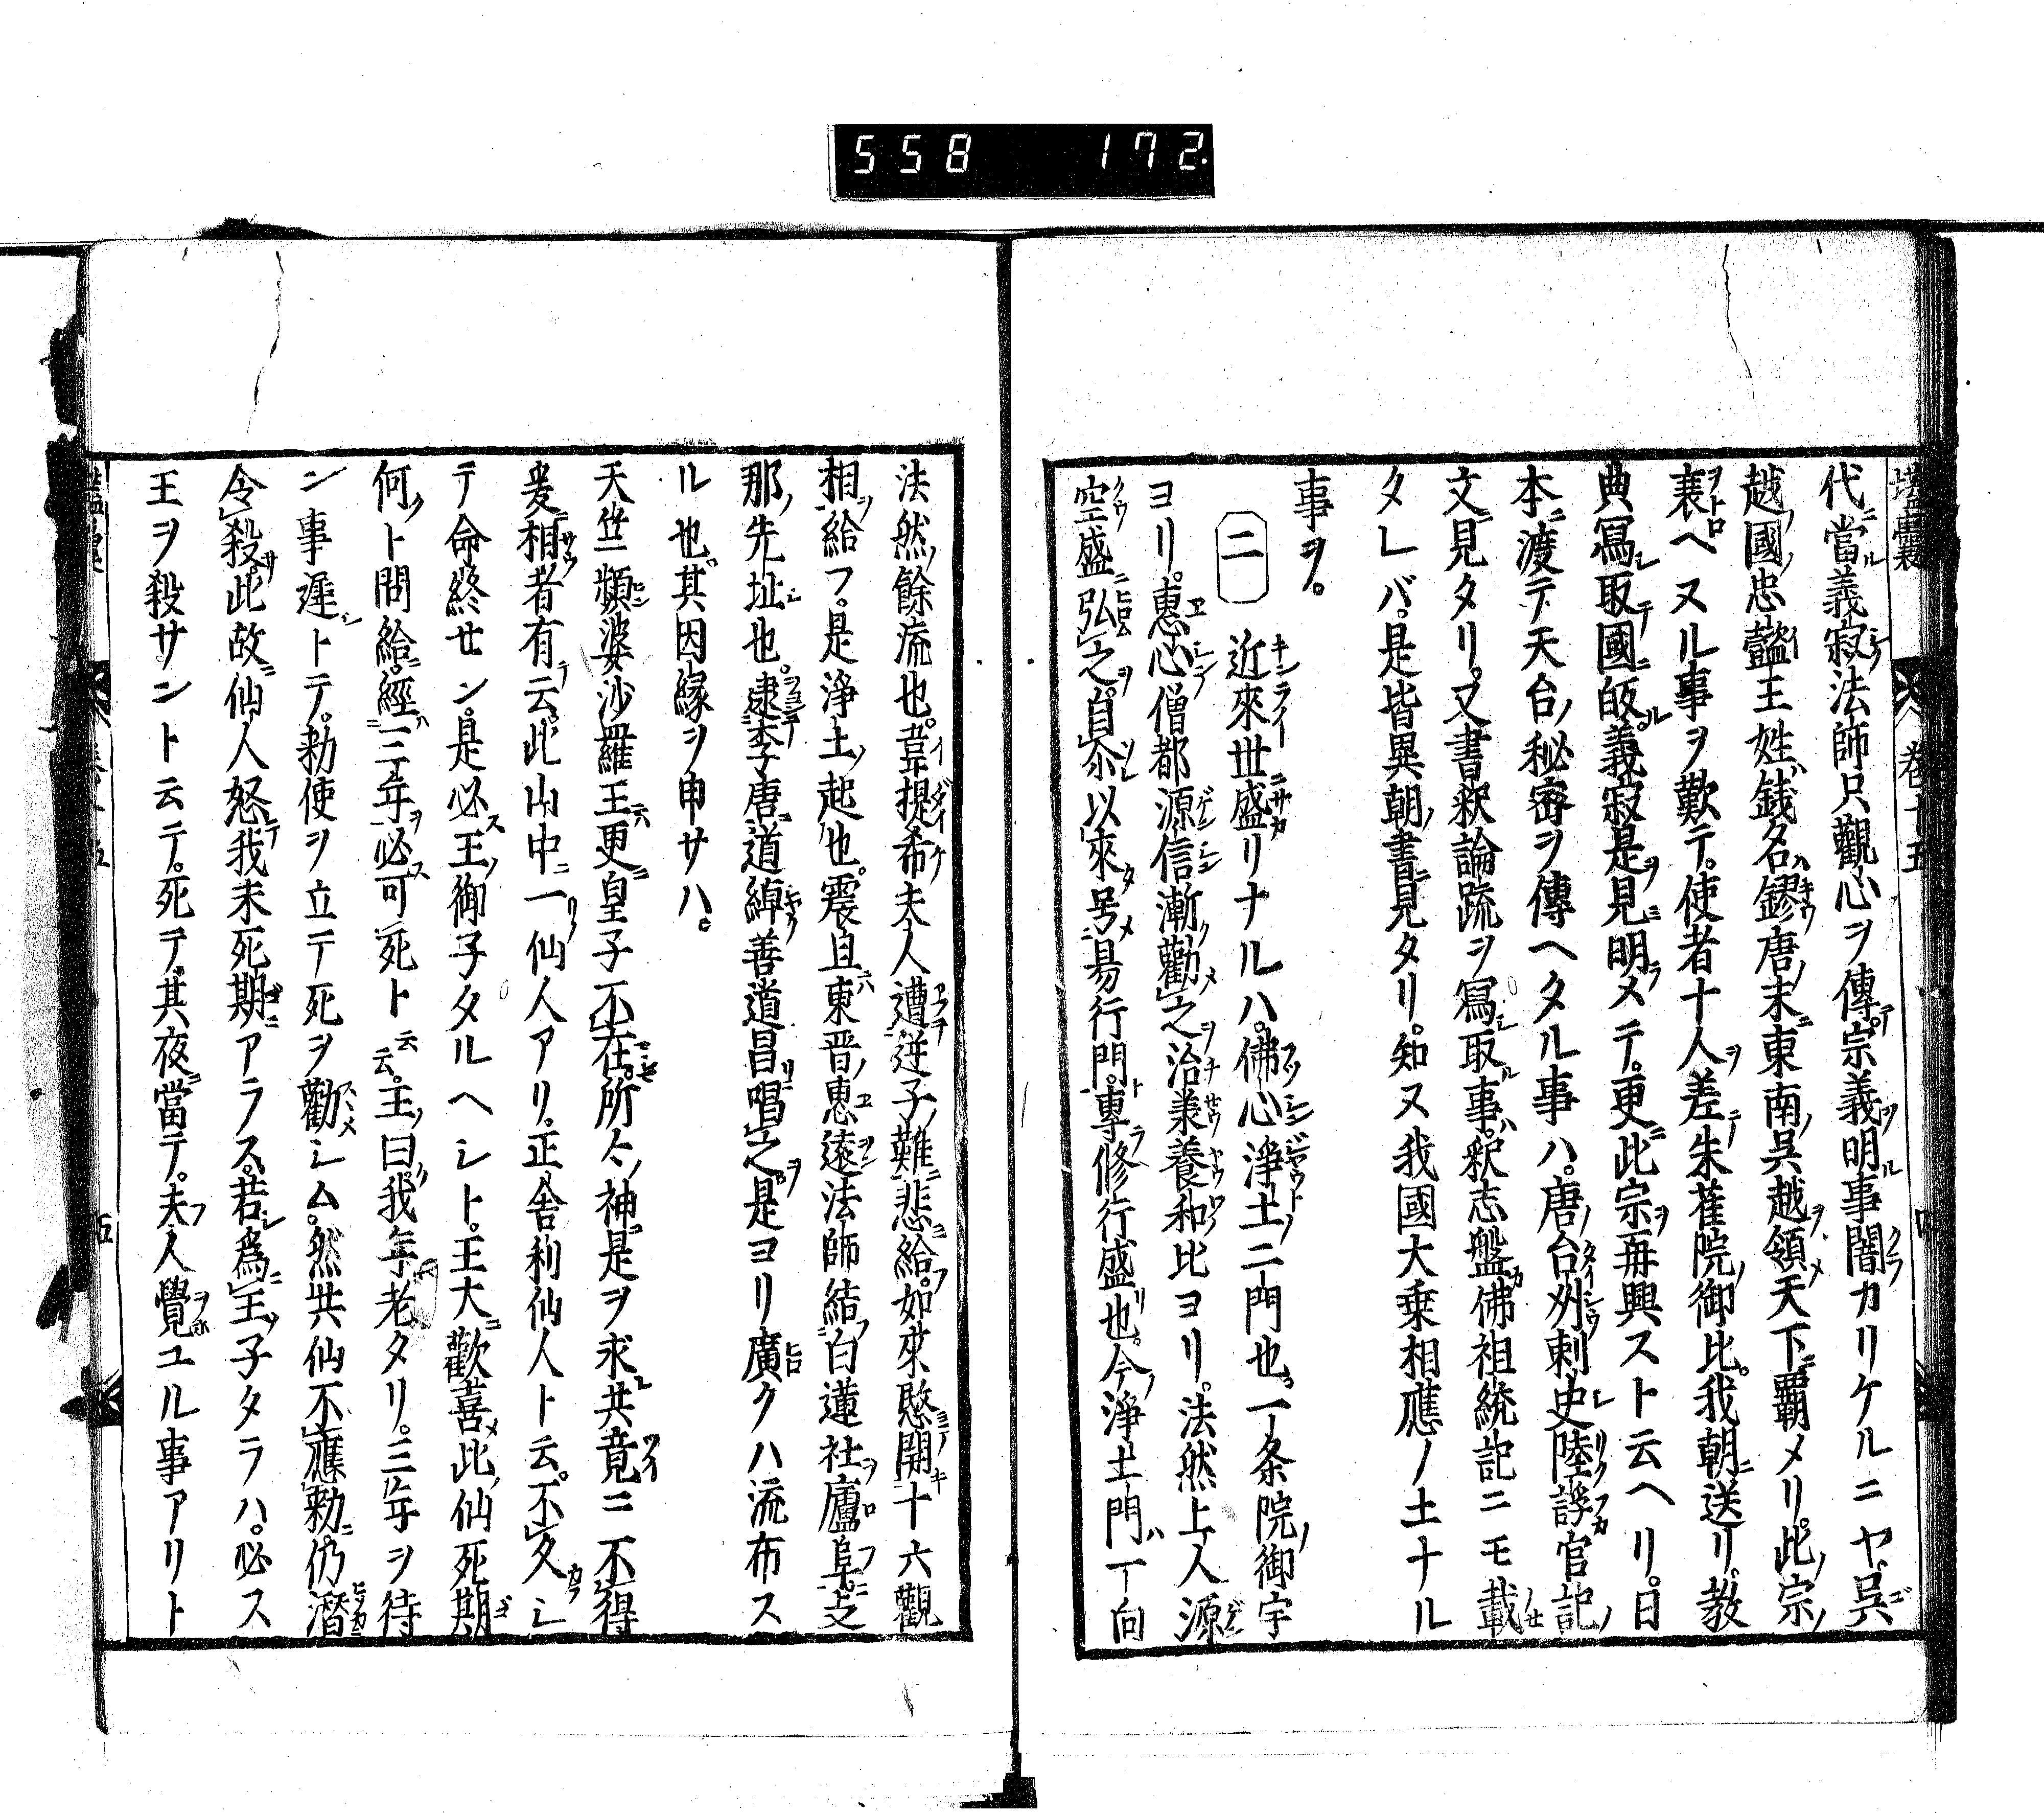 558 172
壒囊 巻十五 四
代ニ當ル義寂法師只觀心ヲ傳テ宗義ヲ明ル事闇カリケルニヤ。呉
越國ノ忠懿王姓ハ銭名ハ鏐唐ノ末ニ東南ノ呉越ヲ領メ天下ニ覇メリ。此ノ宗ノ
衰ヘヌル事ヲ歎テ。使者十人ヲ差テ朱雀院ノ御比。我朝ニ送リ。教
典寫シ取テ國ニ皈ル。義寂是ヲ見ミ明ラメテ。更ニ此宗ヲ再興スト云ヘリ。日
本ニ渡テ天台ノ秘密ヲ傳ヘタル事ハ。唐ノ台州刺史陸諄官記ノ
文ニ見タリ。又書釈論疏ヲ寫シ取ル事ハ。釈志盤カ佛祖統記ニモ載
タレバ。是皆異朝ノ書ニ見タリ。知ヌ我國大乗相應ノ土ナル
事ヲ。
二 近來世ニ盛リナルハ。佛心淨土ノ二門也。一条院ノ御宇
ヨリ。惠心僧都源信漸ク勸メ之ヲ治兼養和ノ比ヨリ。法然上人源
空盛ニ弘之ヲ。自尓以來タメ号易行門ト。專ラ修行盛也。今ノ淨土門ハ一向
法然ノ餘流也。韋提希夫人遭逆子ノ難ニ悲給フ。如來愍テ開キ十六觀
相ヲ給フ。是淨土ノ起也。震旦ニハ東晋ノ惠遠法師結フ白蓮社ヲ廬阜ニ。支
那ノ先址也。逮李唐ニ道綽善道昌リニ唱之ヲ。是ヨリ廣クハ流布ス
ル也。其因縁ヲ申サハ。
天竺ニ頻婆沙羅王云更ニ皇子不在。所々ノ神ニ是ヲ求レ共竟ニ不得
爰ニ相者有テ云。此山中ニ一リノ仙人アリ。正舎利仙人ト云。不久シ
テ命終せン。是必ス王ノ御子タルヘシト。王大ニ歡喜メ此ノ仙死期
何ノト問給ニ。經ハ三年ヲ必ス可死ト云云。王ノ曰ク。我年老タリ。三年ヲ待
ン事遅シトテ。勅使ヲ立テ死ヲ勸シム。然共仙不應勅ニ仍潜ニ
令殺サ。此故ニ仙人怒テ我未死期ニアラス。若シ爲ニ王ノ子タラハ。必ス
王ヲ殺サント云テ。死テ其夜ニ當テ。夫人覺ユル事アリト